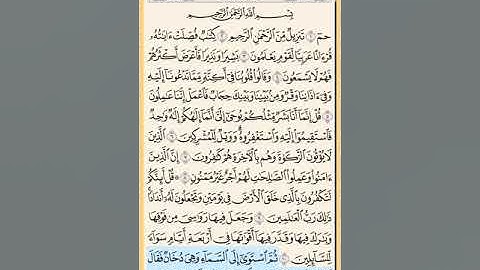 بِسْمِ ٱللَّهِ ٱلرَّحْمَٰنِ ٱلرَّحِيمِ
حمٓ ١ تَنزِيلٌ مِّنَ ٱلرَّحْمَٰنِ ٱلرَّحِيمِ ٢ كِتَٰبٌ فُصِّلَتْ ءَايَٰتُهُۥ
قُرْءَانًا عَرَبِيًّا لِّقَوْمٍ يَعْلَمُونَ ٣ بَشِيرًا وَنَذِيرًا فَأَعْرَضَ أَكْثَرُهُمْ
فَهُمْ لَا يَسْمَعُونَ ٤ وَقَالُوا۟ قُلُوبُنَا فِىٓ أَكِنَّةٍ مِّمَّا تَدْعُونَآ إِلَيْهِ
وَفِىٓ ءَاذَانِنَا وَقْرٌ وَمِنۢ بَيْنِنَا وَبَيْنِكَ حِجَابٌ فَٱعْمَلْ إِنَّنَا عَٰمِلُونَ
٥ قُلْ إِنَّمَآ أَنَا۠ بَشَرٌ مِّثْلُكُمْ يُوحَىٰٓ إِلَىَّ أَنَّمَآ إِلَٰهُكُمْ إِلَٰهٌ وَٰحِدٌ
فَٱسْتَقِيمُوٓا۟ إِلَيْهِ وَٱسْتَغْفِرُوهُ وَوَيْلٌ لِّلْمُشْرِكِينَ ٦ ٱلَّذِينَ
لَا يُؤْتُونَ ٱلزَّكَوٰةَ وَهُم بِٱلْءَاخِرَةِ هُمْ كَٰفِرُونَ ٧ إِنَّ ٱلَّذِينَ
ءَامَنُوا۟ وَعَمِلُوا۟ ٱلصَّٰلِحَٰتِ لَهُمْ أَجْرٌ غَيْرُ مَمْنُونٍ ٨ ۞ قُلْ أَئِنَّكُمْ
لَتَكْفُرُونَ بِٱلَّذِى خَلَقَ ٱلْأَرْضَ فِى يَوْمَيْنِ وَتَجْعَلُونَ لَهُۥٓ أَندَادًا
ذَٰلِكَ رَبُّ ٱلْعَٰلَمِينَ ٩ وَجَعَلَ فِيهَا رَوَٰسِىَ مِن فَوْقِهَا
وَبَٰرَكَ فِيهَا وَقَدَّرَ فِيهَآ أَقْوَٰتَهَا فِىٓ أَرْبَعَةِ أَيَّامٍ سَوَآءً
لِّلسَّآئِلِينَ ١٠ ثُمَّ ٱسْتَوَىٰٓ إِلَى ٱلسَّمَآءِ وَهِىَ دُخَانٌ فَقَالَ